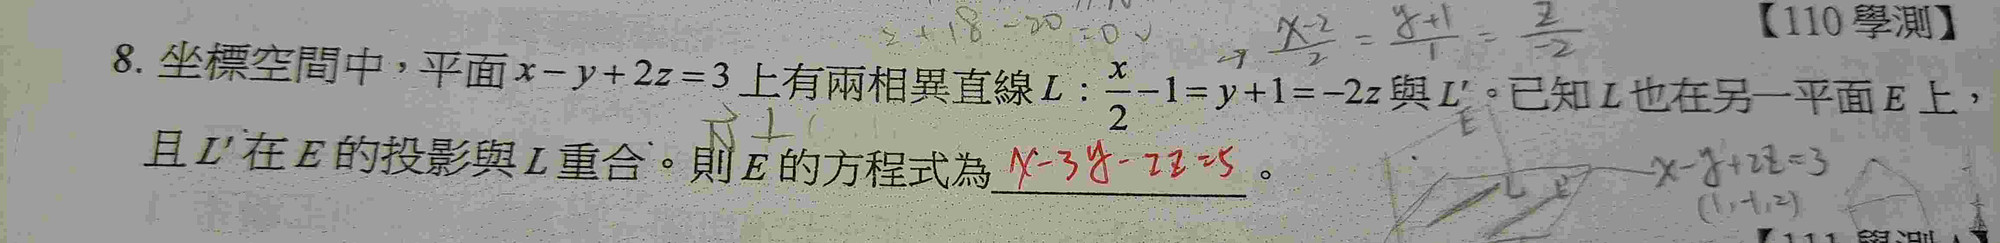 2+18-20=0✓ → x-2/2 = y+1/1 = z/-2 【110 學測】
8. 坐標空間中，平面 x－y＋2z＝3 上有兩相異直線 L：x/2－1＝y＋1＝－2z 與 L′。已知 L 也在另一平面 E 上，
E
且 L′ 在 E 的投影與 L 重合。則 E 的方程式為 x-3y-2z=5 。
N ⊥
L L' x-y+2z=3
(1,-1,2)
【111 學測A】